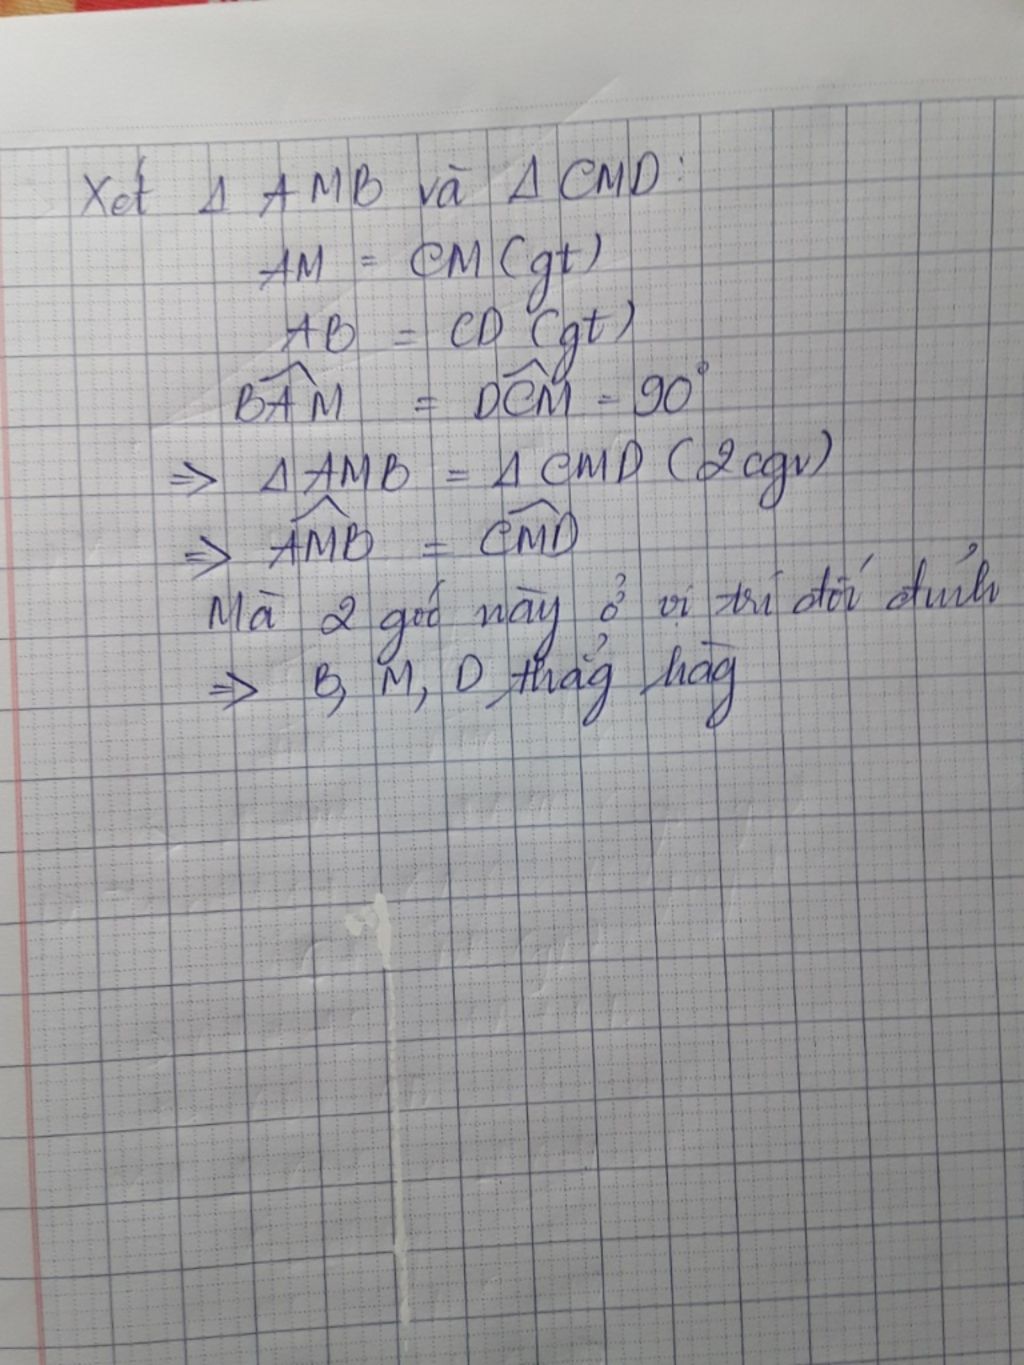 Xét Δ AMB và Δ CMD:
AM = CM (gt)
AB = CD (gt)
BÂM = DĈM = 90°
=> Δ AMB = Δ CMD (2cgv)
=> AM̂B = CM̂D
Mà 2 góc này ở vị trí đối đỉnh
=> B, M, D thảg hàg